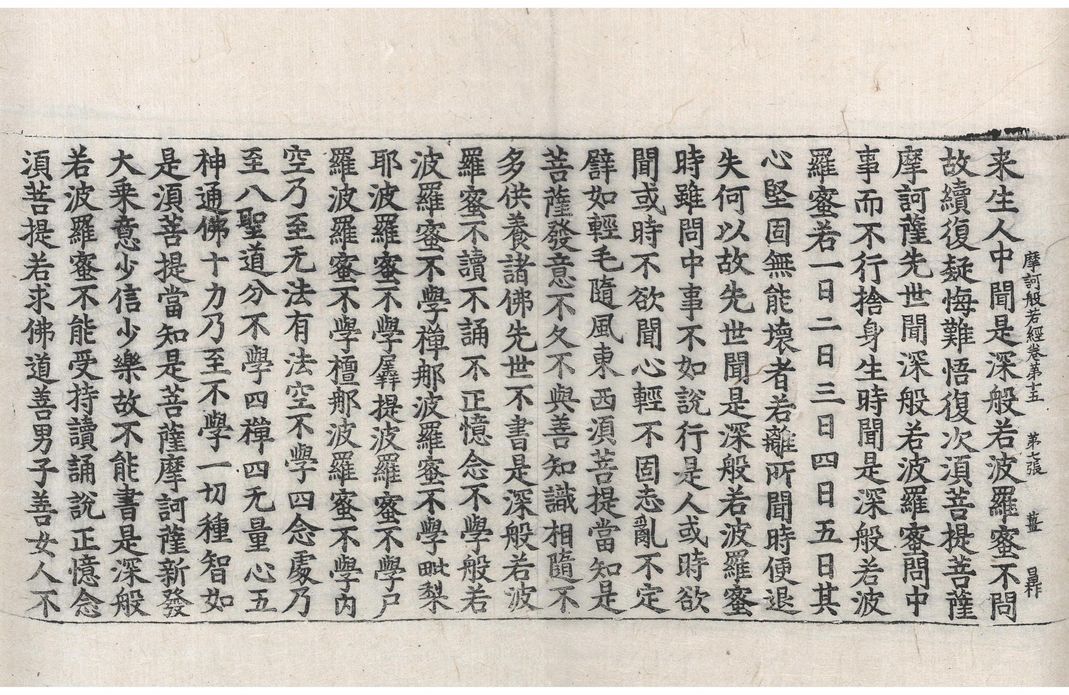 摩訶般若經卷第十五 第七張 薑 昇
来生人中聞是深般若波羅蜜不問
故續復疑悔難悟復次湏菩提菩薩
摩訶薩先世聞深般若波羅蜜問中
事而不行捨身生時聞是深般若波
羅蜜若一日二日三日四日五日其
心堅固無能壞者若離所聞時便退
失何以故先世聞是深般若波羅蜜
時雖問中事不如說行是人或時欲
聞或時不欲聞心輕不固志亂不定
譬如輕毛隨風東西湏菩提當知是
菩薩發意不久不與善知識相隨不
多供養諸佛先世不書是深般若波
羅蜜不讀不誦不正憶念不學般若
波羅蜜不學禪那波羅蜜不學毗梨
耶波羅蜜不學羼提波羅蜜不學尸
羅波羅蜜不學檀那波羅蜜不學内
空乃至无法有法空不學四念處乃
至八聖道分不學四禪四无量心五
神通佛十力乃至不學一切種智如
是湏菩提當知是菩薩摩訶薩新發
大乗意少信少樂故不能書是深般
若波羅蜜不能受持讀誦說正憶念
湏菩提若求佛道善男子善女人不